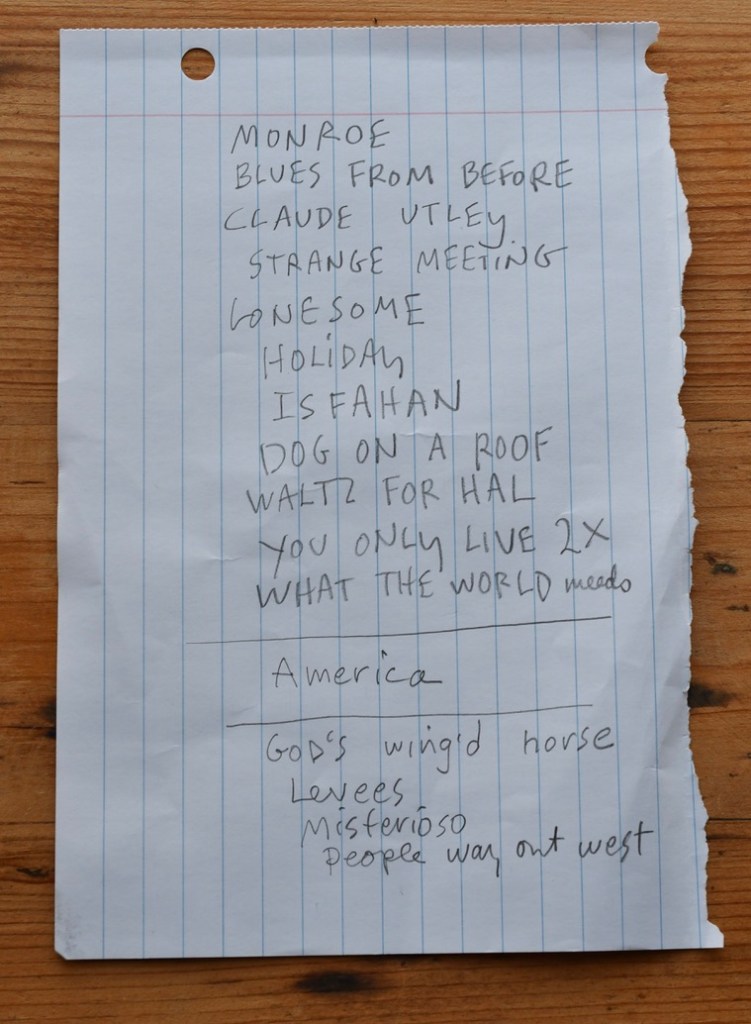 MONROE
BLUES FROM BEFORE
CLAUDE UTLEY
STRANGE MEETING
LONESOME
HOLIDAY
ISFAHAN
DOG ON A ROOF
WALTZ FOR HAL
YOU ONLY LIVE 2X
WHAT THE WORLD needs
America
GOD'S wing'd horse
Levees
Misterioso
People way out west